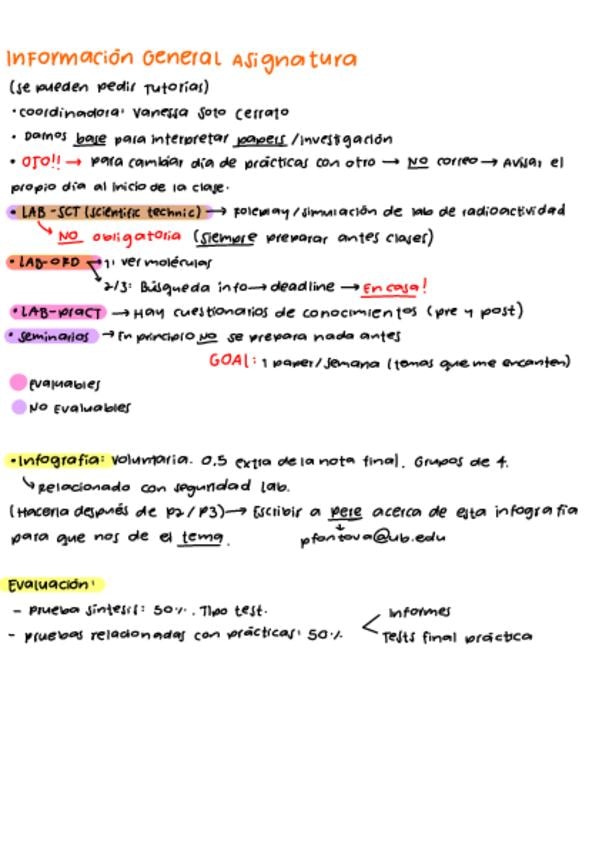 Información General Asignatura
(se pueden pedir tutorías)
• coordinadora: Vanessa Soto Cerrato
• Damos base para interpretar papers / investigación
• OJO!! → para cambiar día de prácticas con otro → NO correo → Avisar el
propio día al inicio de la clase.
• LAB-SCT (scientific technic) → roleplay / simulación de lab de radioactividad
↳ NO obligatoria (siempre preparar antes clases)
• LAB-ORD → 1: ver moléculas
↘ 2/3: Búsqueda info → deadline → En casa!
• LAB-pract → Hay cuestionarios de conocimientos (pre y post)
• seminarios → En principio NO se prepara nada antes
GOAL: 1 paper/semana (temas que me encanten)
Evaluables
NO Evaluables
• Infografía: voluntaria. 0,5 extra de la nota final. Grupos de 4.
↳ Relacionado con seguridad lab.
(Hacerla después de P2/P3) → Escribir a pere acerca de esta infografía
para que nos de el tema. pfontova@ub.edu
Evaluación:
- Prueba síntesis: 50%. Tipo test.
- pruebas relacionadas con prácticas: 50% < Informes
Tests final práctica